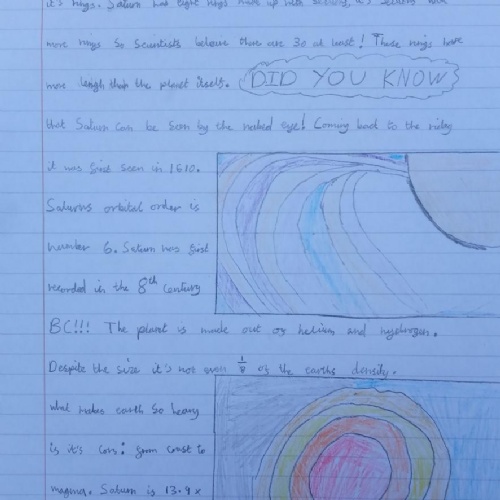 it's rings. Saturn has eight rings made up with
more rings so Scientists beleive there are 30 at least! These rings have
more length than the planet itself. DID YOU KNOW
that Saturn can be seen by the naked eye! Coming back to the
it was first seen in 1610.
Saturns orbital order is
number 6. Saturn was first
recorded in the 8th Century
BC!!! The planet is made out of helium and hydrogen.
Despite the size it's not even 1/8 of the earths density.
what makes earth so heavy
is it's core: from crust to
magma. Saturn is 13.9x